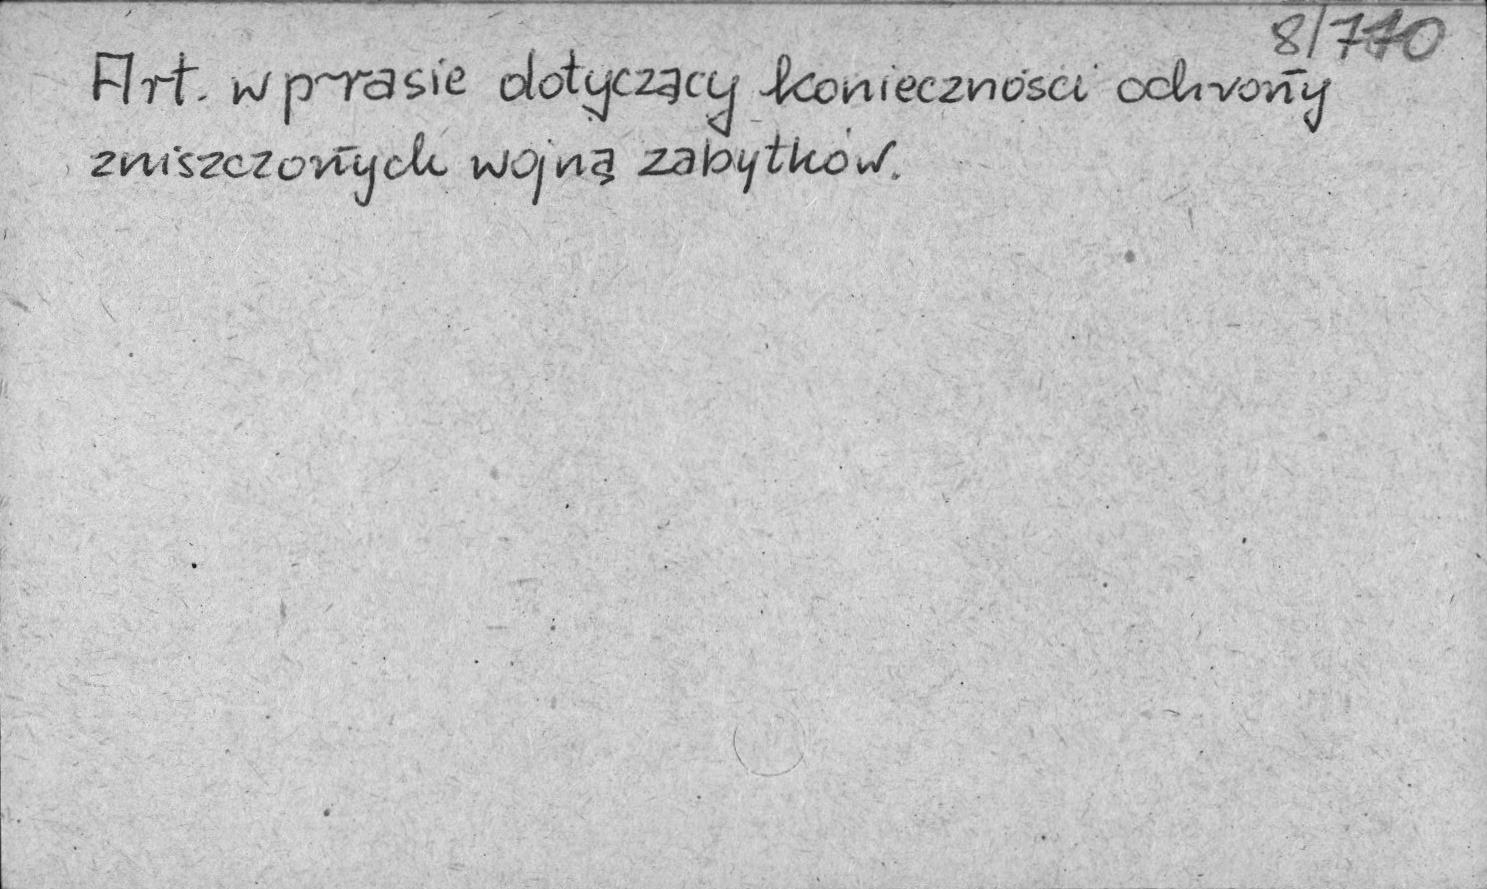 8/770
Art. w prasie dotyczący konieczności ochrony
zniszczonych wojną zabytków.